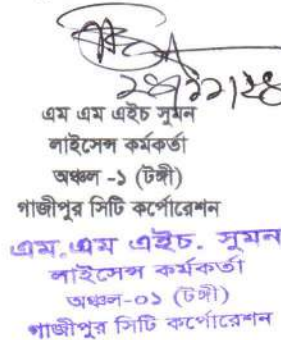 এম এম এইচ সুমন
লাইসেন্স কর্মকর্তা
অঞ্চল -১ (টঙ্গী)
গাজীপুর সিটি কর্পোরেশন
এম. এম এইচ. সুমন
লাইসেন্স কর্মকর্তা
অঞ্চল-০১ (টঙ্গী)
গাজীপুর সিটি কর্পোরেশন